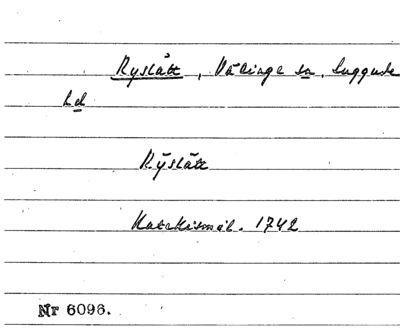 Ryslätt, Välinge sn, Luggude
hd
Rÿslätt
Katekismäl. 1742
Nr 6096.